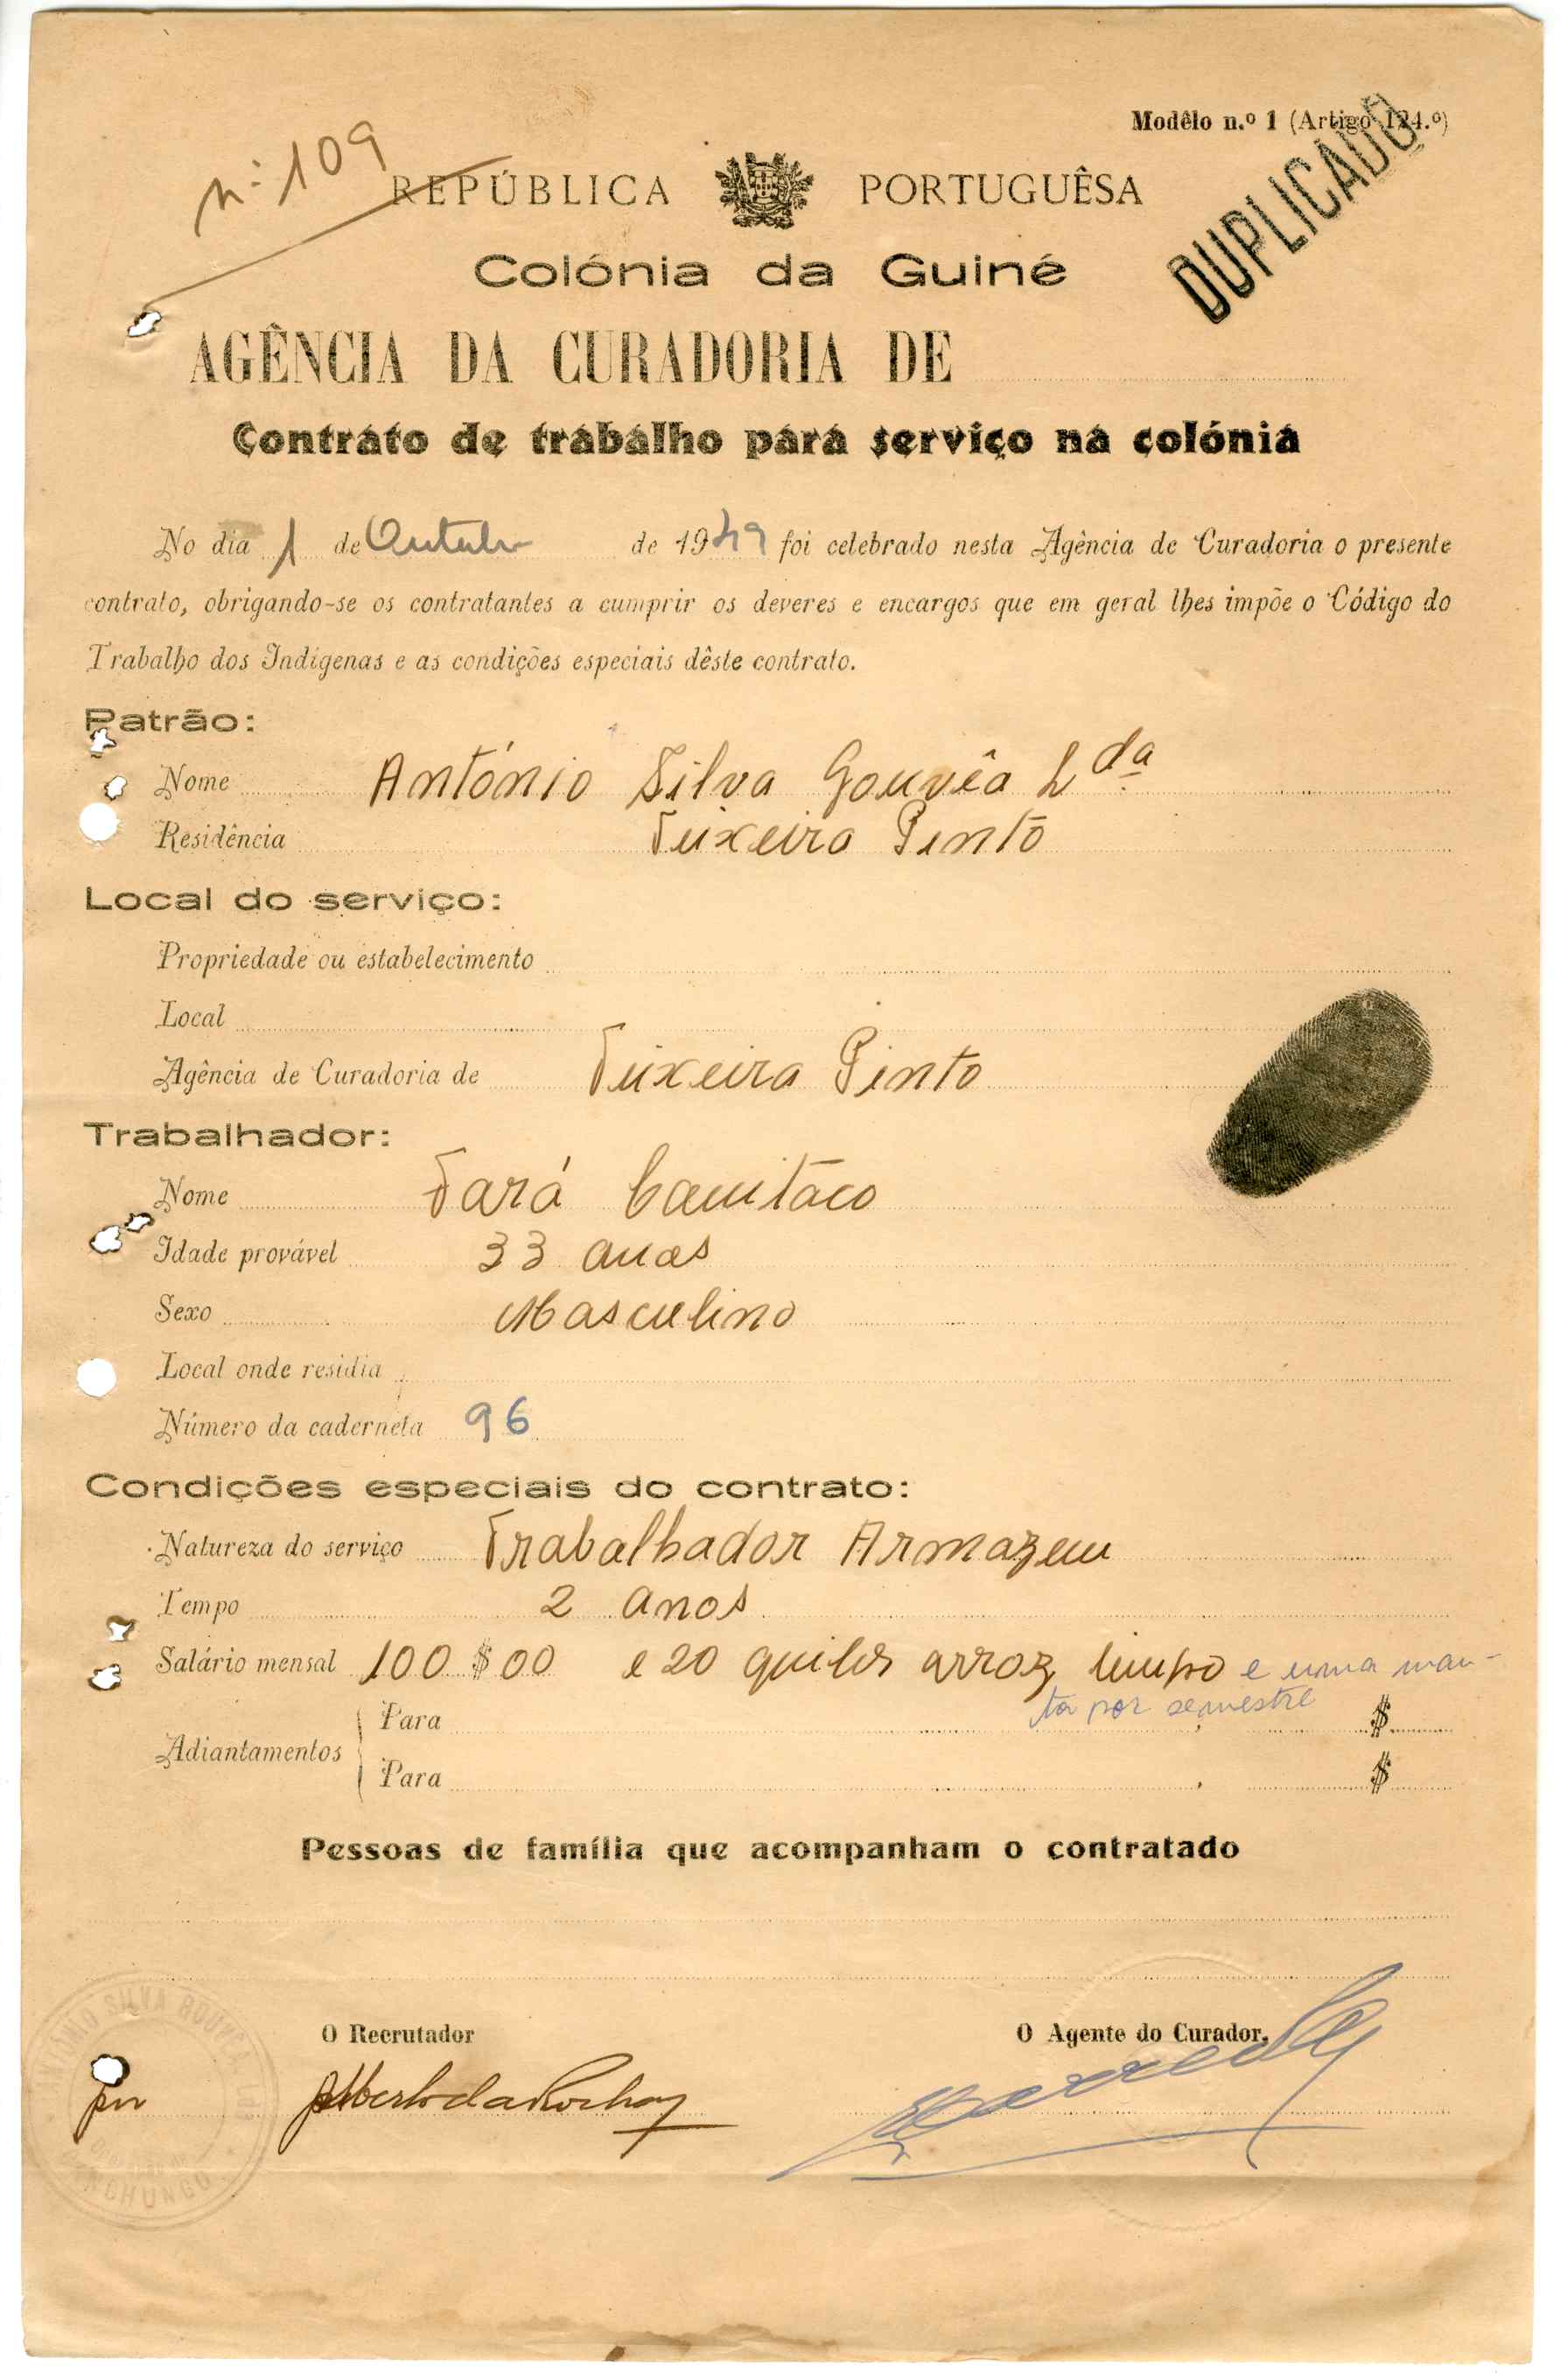 Modêlo n.º 1 (Artigo 124.º)
n.º 109
DUPLICADO
REPÚBLICA PORTUGUÊSA
Colónia da Guiné
AGÊNCIA DA CURADORIA DE
Contrato de trabalho para serviço na colónia
No dia 1 de Outubro de 1949 foi celebrado nesta Agência de Curadoria o presente
contrato, obrigando-se os contratantes a cumprir os deveres e encargos que em geral lhes impõe o Código do
Trabalho dos Indígenas e as condições especiais dêste contrato.
Patrão:
Nome António Silva Gouvêa Lda.
Residência Teixeira Pinto
Local do serviço:
Propriedade ou estabelecimento
Local
Agência de Curadoria de Teixeira Pinto
Trabalhador:
Nome Tará
Idade provável 33 anos
Sexo Masculino
Local onde residia
Número da caderneta 96
Condições especiais do contrato:
Natureza do serviço Trabalhador Armazem
Tempo 2 anos
Salário mensal 100$00 e 20 quilos arroz limpo e uma man-
ta por semestre
Adiantamentos
Para $
Para $
Pessoas de família que acompanham o contratado
O Recrutador
O Agente do Curador,
por Alberto da Rocha
ANTÓNIO SILVA GOUVEA, LDA
CANCHUNGO